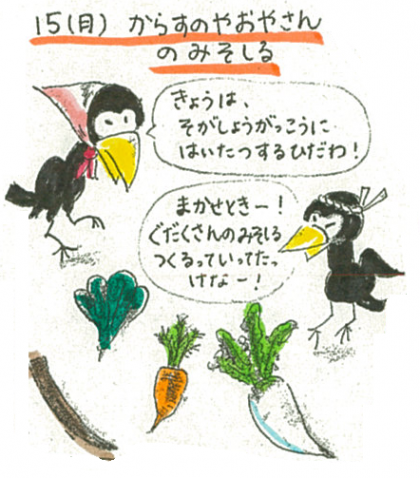 15(月) からすのやおやさん
のみそしる
きょうは、
そがしょうがっこうに
はいたつするひだわ!
まかせときー!
ぐだくさんのみそしる
つくるっていってたっ
けなー!